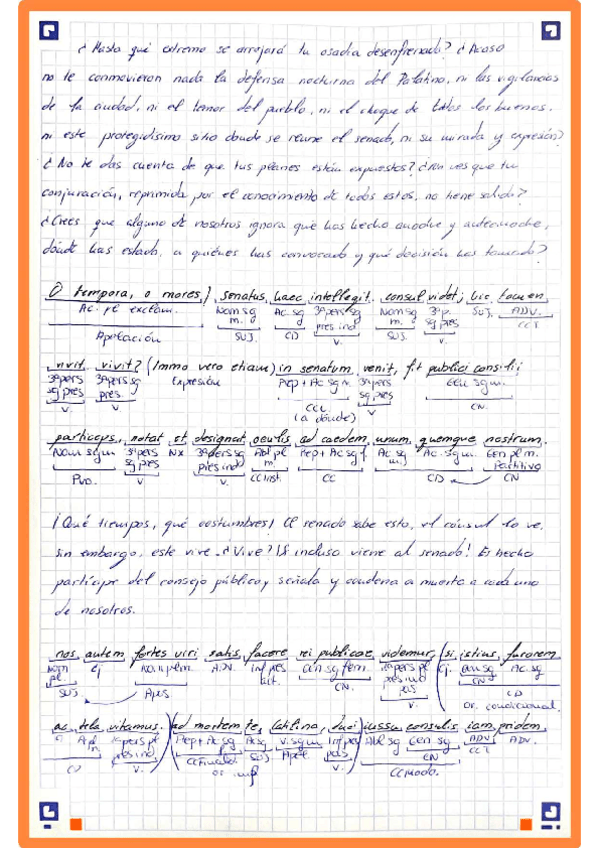 ¿Hasta qué extremo se arrojará tu osadía desenfrenada? ¿Acaso
no te conmovieron nada la defensa nocturna del Palatino, ni las vigilancias
de la ciudad, ni el temor del pueblo, ni el choque de todos los buenos,
ni este protegidísimo sitio donde se reúne el senado, ni su mirada y expresión?
¿No te das cuenta de que tus planes están expuestos? ¿No ves que tu
conjuración, reprimida por el conocimiento de todos estos, no tiene salida?
¿Crees que alguno de nosotros ignora qué has hecho anoche y antenoche,
dónde has estado, a quiénes has convocado y qué decisión has tomado?
O tempora, o mores! senatus haec intellegit. consul videt; hic tamen
Ac. pl exclam. Nom sg m. Ac. sg 3ªpers sg pres ind Nom sg m. 3ªp. sg pres SUJ. ADV.
Apelación SUJ. CD V. SUJ. V. CCT
vivit. vivit? (Immo vero etiam) in senatum venit, fit publici consilii
3ªpers sg pres 3ªpers sg pres. Expresión Prep + Ac sg m. 3ªpers sg pres Gen sg m.
V. V. CCL (a dónde) V. CN.
particeps, notat et designat oculis ad caedem unum quemque nostrum.
Nom sg m 3ªpers sg pres NX 3ªpers sg pres ind Abl pl m. Prep + Ac sg f. Ac sg m. Ac. sg m. Gen pl m. Partitivo
Pvo. V. V. CC Inst. CC CD CN
¡Qué tiempos, qué costumbres! El senado sabe esto, el cónsul lo ve,
sin embargo, este vive. ¿Vive? ¡Si incluso viene al senado! Es hecho
partícipe del consejo público, señala y condena a muerte a cada uno
de nosotros.
nos autem fortes viri satis facere rei publicae videmur, (si istius furorem
Nom pl. Cj Nom pl m. ADV. Inf pres act. Gen sg fem. 1ªpers pl pres ind pas Cj. Gen sg Ac. sg
SUJ. Apos. CN. V. CN CD
Or. condicional
ac tela vitamus.) (ad mortem te, Catilina, duci iussu consulis iam pridem
Prep + Ac sg Ac sg V. sg m Inf pres pas Abl sg Gen sg ADV ADV.
1ªpers pl pres ind SUJ Apel. V. CN CCT
V. CC Modo.